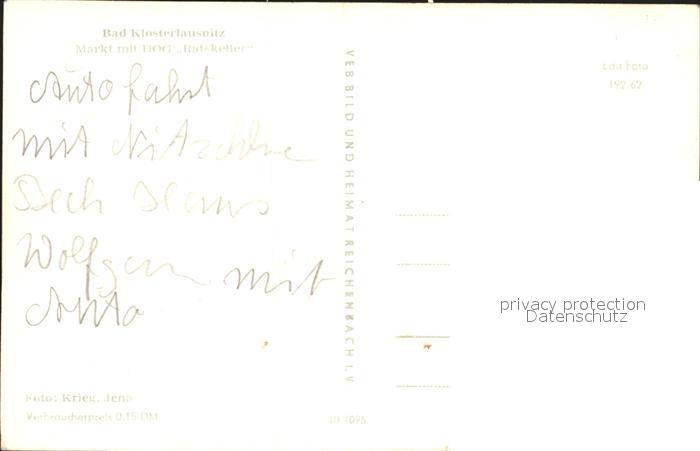 Bad Klosterlausnitz
Markt mit HOG „Ratskeller"
Autofahrt
mit
Wolfgang mit
Auto
Foto: Krieg, Jena
Verbraucherpreis 0,15 DM
VEB BILD UND HEIMAT REICHENBACH I. V
Echt Foto
192/62
privacy protection
Datenschutz